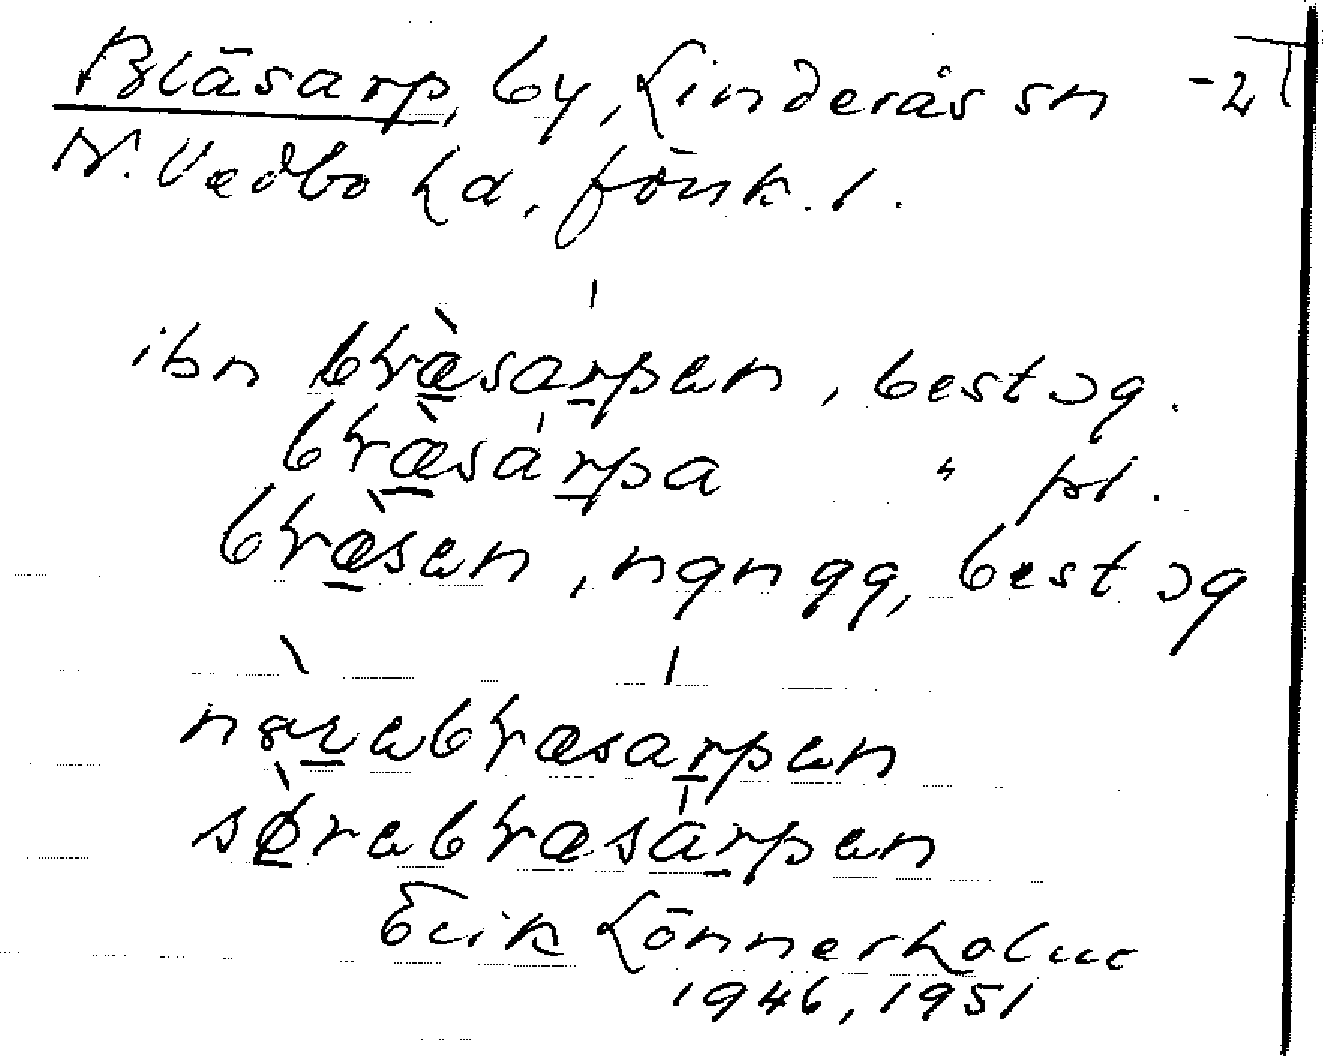 Bläsarp, by, Linderås sn -2
N. Vedbo hd, Jönk. l.
ibn bɽæ̀sarpən, best sg.
bɽæ̀sarpa " pl.
bɽæ̀sən, ngn gg, best sg
bɽæsarpən
sø̀rəbɽæsarpən
Erik Lönnerholm
1946, 1951